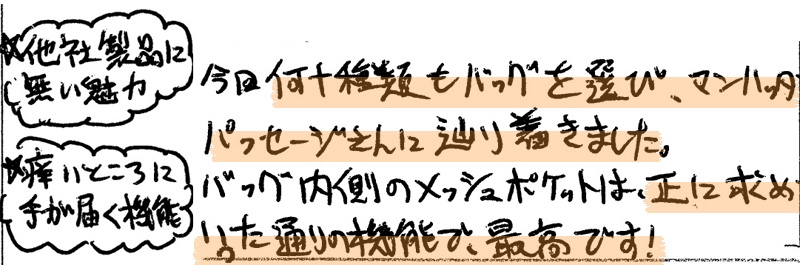 ☆他社製品に
無い魅力
☆痒いところに
手が届く機能
今回何十種類もバッグを選び、マンハッタ
パッセージさんに辿り着きました。
バッグ内側のメッシュポケットは、正に求め
いた通りの機能で、最高です!